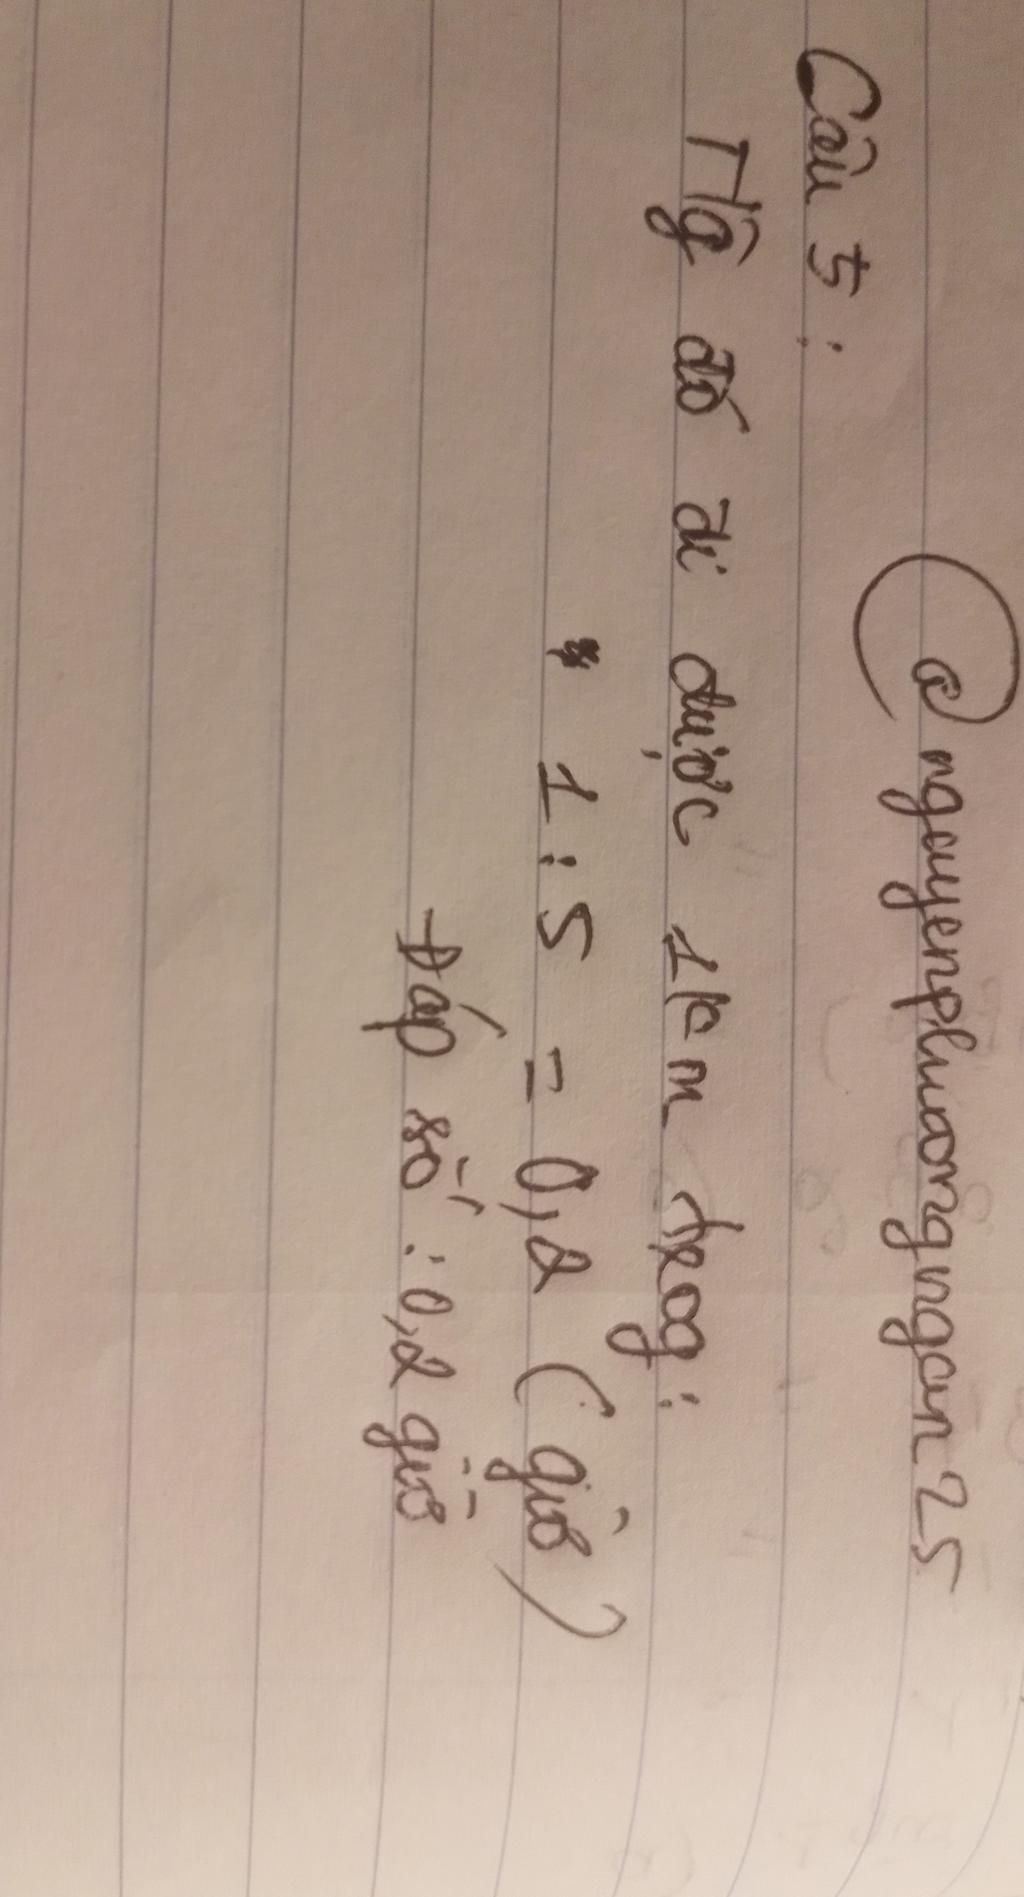 @nguyenphuongngan25
Câu 5:
Tg đó đi được 1km trog:
1 : 5 = 0,2 (giờ)
Đáp số : 0,2 giờ